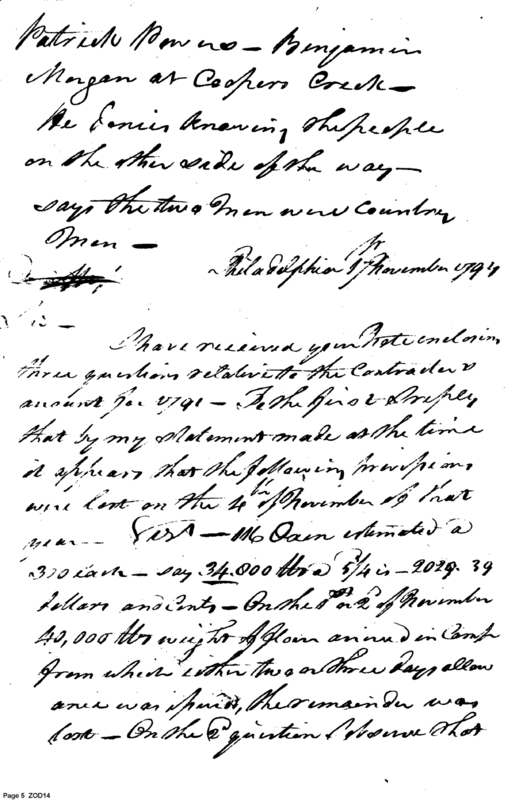 Patrick Powers — Benjamin
Morgan at Coopers Creek —
He denies knowing the people
on the other side of the way —
says the two Men were Country
Men —
Philadelphia 17 November 1794
Sir —
I have received your Note enclosing
three questions relative to the Contractors
account for 1791 — To the first I reply
that by my statement made at the time
it appears that the following provisions
were lost on the 4th of November of that
year — Oxen estimated a
each — say 34.000 lbs a 5¾ is — 2029. 39
Dollars and Cents — On the 1st or 2d of November
40,000 lbs weight of flour arrived in Camp
from which either two or three days allow
ance was issued, the remainder was
lost — On the 2d question I observe that
Page 5 ZOD14